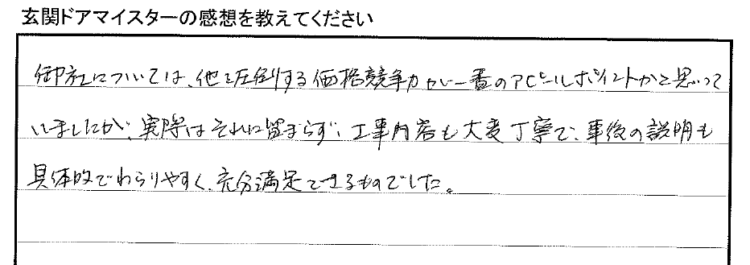 玄関ドアマイスターの感想を教えてください
御社については、他を圧倒する価格競争力が一番のアピールポイントかと思って
いましたが、実際はそれに留まらず、工事内容も大変丁寧で、事後の説明も
具体的でわかりやすく、充分満足できるものでした。